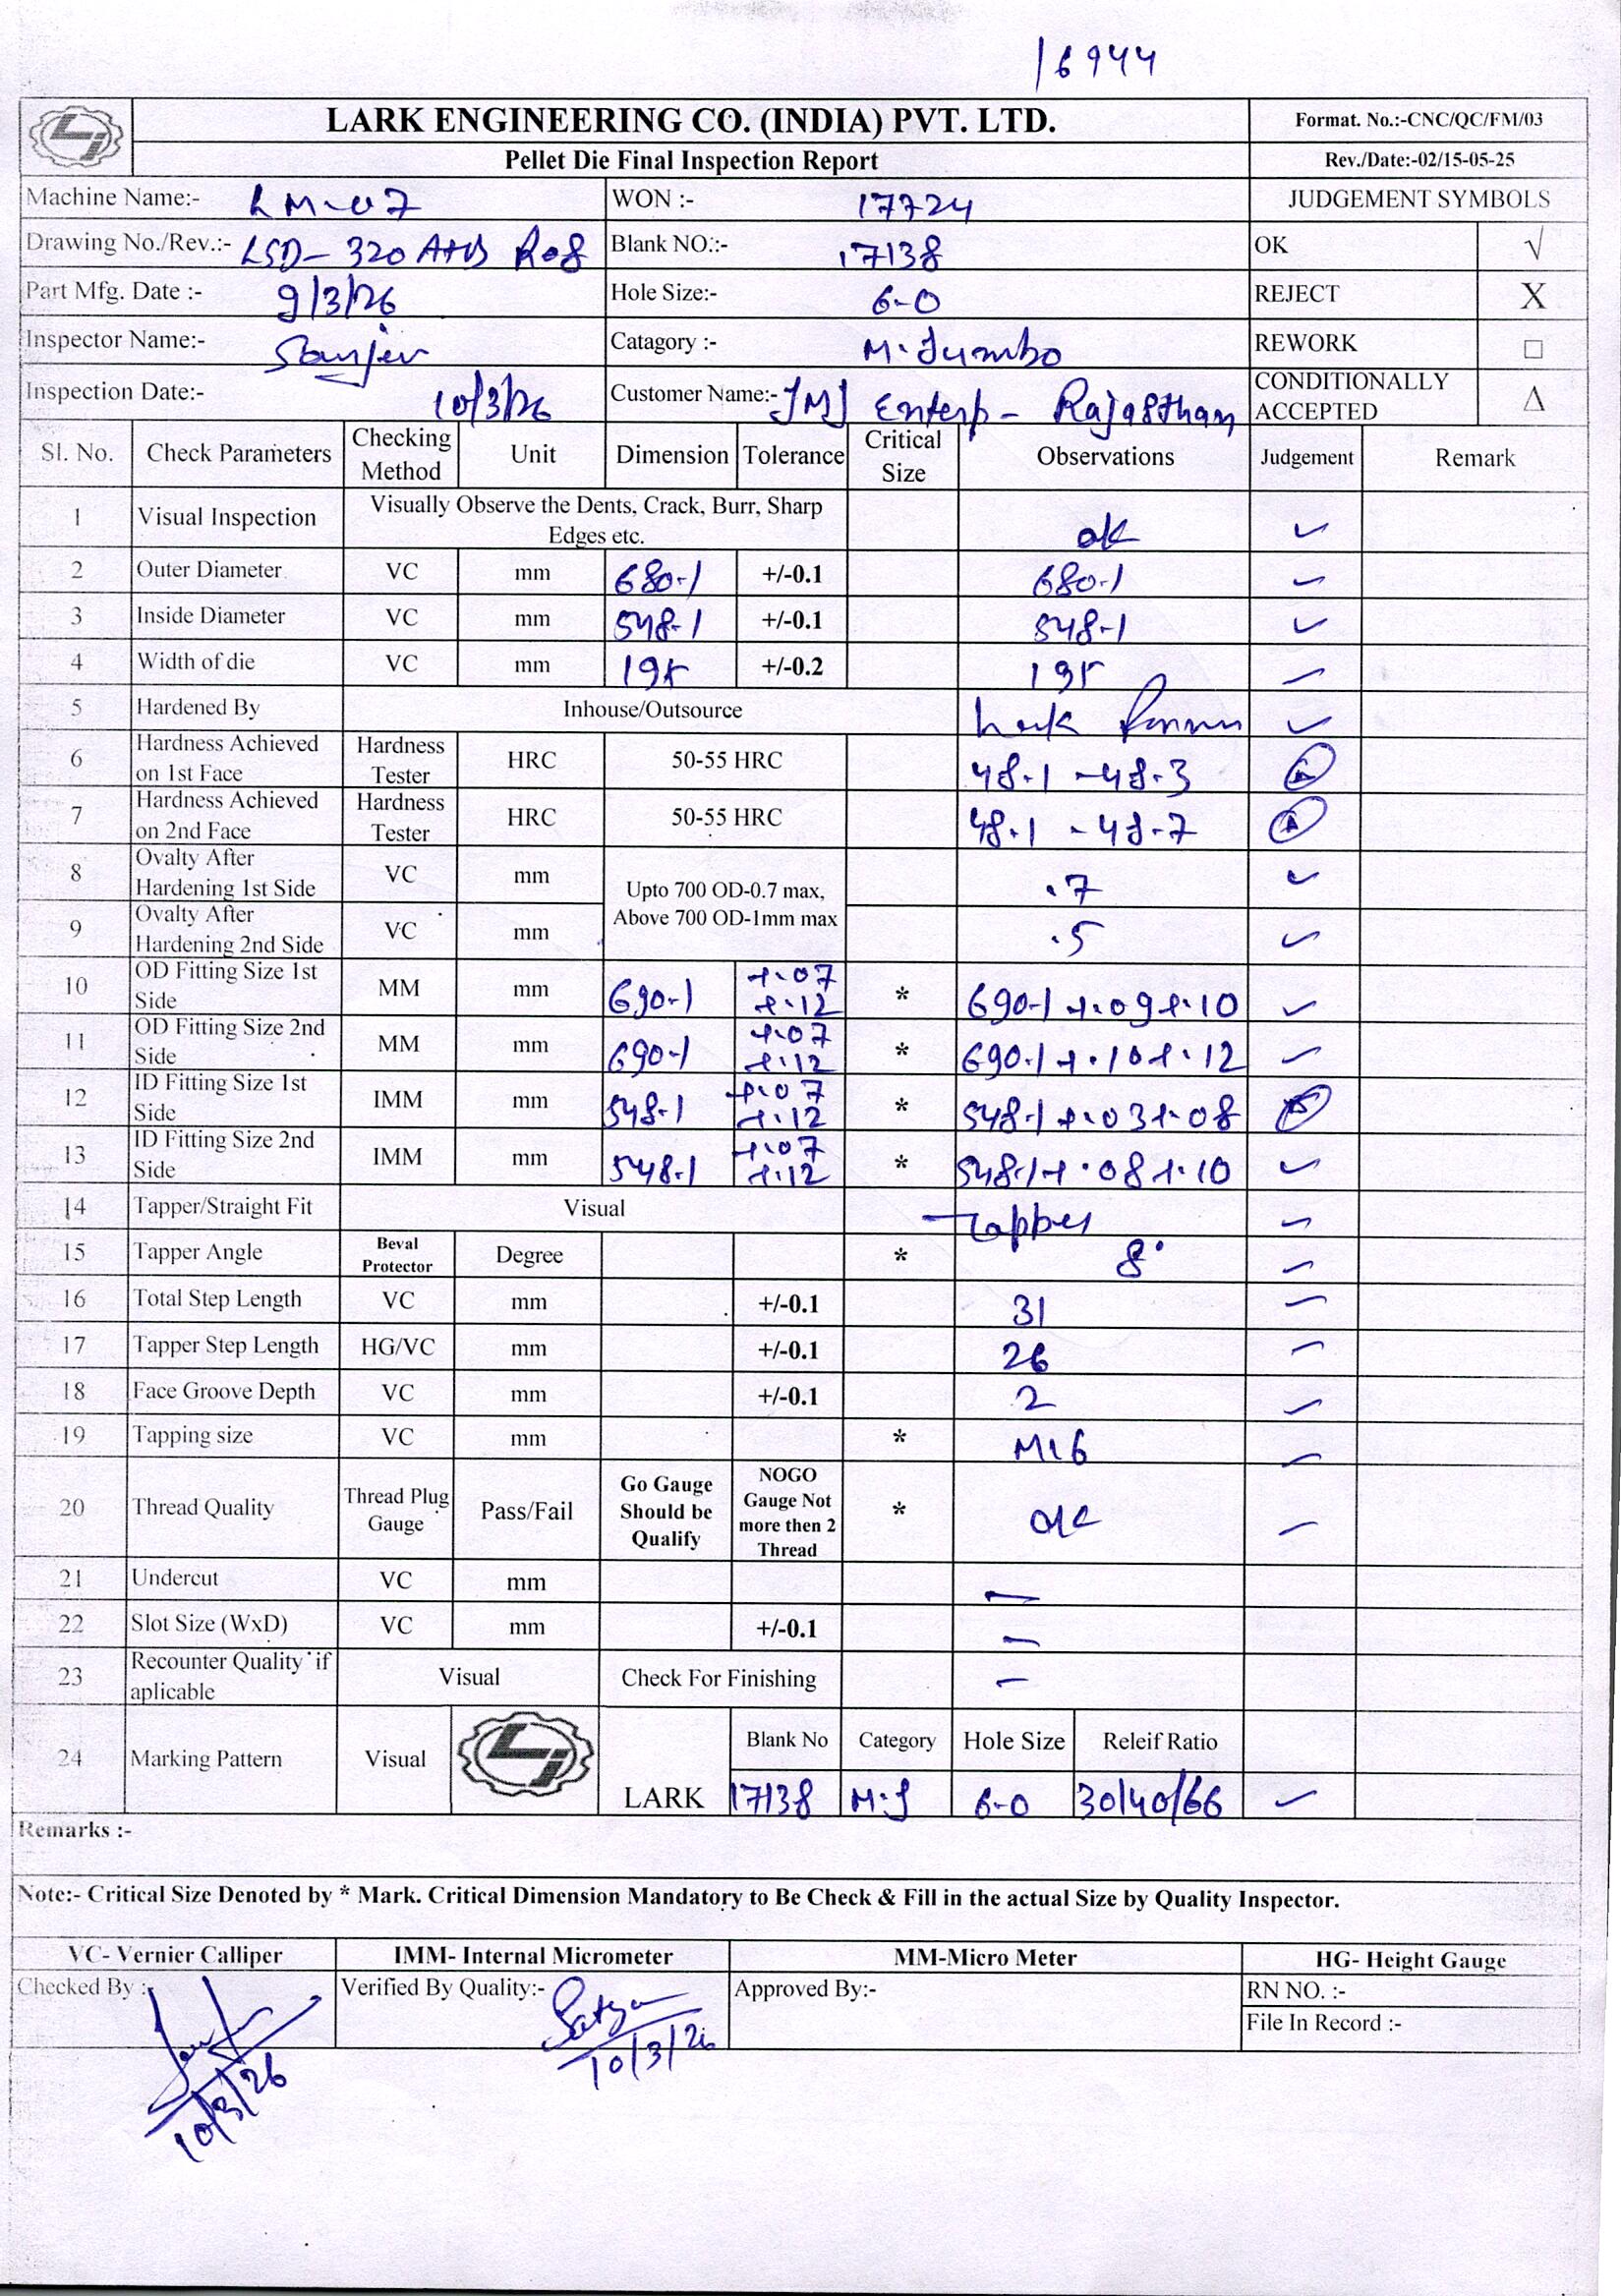 16944
LARK ENGINEERING CO. (INDIA) PVT. LTD.
Format. No.:-CNC/QC/FM/03
Pellet Die Final Inspection Report
Rev./Date:-02/15-05-25
Machine Name:- LM-07 WON :- 17724 JUDGEMENT SYMBOLS
Drawing No./Rev.:- LSD-320 R08 Blank NO.:- 17138 OK √
Part Mfg. Date :- 9/3/26 Hole Size:- 6-0 REJECT X
Inspector Name:- Sanjev Catagory :- M.Jumbo REWORK □
Inspection Date:- 10/3/26 Customer Name:- JMJ Enterp- Rajasthan CONDITIONALLY ACCEPTED Δ
Sl. No. Check Parameters Checking Method Unit Dimension Tolerance Critical Size Observations Judgement Remark
1 Visual Inspection Visually Observe the Dents, Crack, Burr, Sharp Edges etc. ok ✓
2 Outer Diameter VC mm 680.1 +/-0.1 680.1 ✓
3 Inside Diameter VC mm 548.1 +/-0.1 548-1 ✓
4 Width of die VC mm 195 +/-0.2 195 ✓
5 Hardened By Inhouse/Outsource Lark ✓
6 Hardness Achieved on 1st Face Hardness Tester HRC 50-55 HRC 48.1 -48.3
7 Hardness Achieved on 2nd Face Hardness Tester HRC 50-55 HRC 48.1 -48.7
8 Ovalty After Hardening 1st Side VC mm Upto 700 OD-0.7 max, Above 700 OD-1mm max .7 ✓
9 Ovalty After Hardening 2nd Side VC mm .5 ✓
10 OD Fitting Size 1st Side MM mm 690.1 +.07 +.12 * 690.1 +.09+.10 ✓
11 OD Fitting Size 2nd Side MM mm 690.1 +.07 +.12 * 690.1+.10+.12 ✓
12 ID Fitting Size 1st Side IMM mm 548.1 +.07 +.12 * 548.1+.03+.08
13 ID Fitting Size 2nd Side IMM mm 548.1 +.07 +.12 * 548.1+.08+.10 ✓
14 Tapper/Straight Fit Visual Tapper ✓
15 Tapper Angle Beval Protector Degree * 8° ✓
16 Total Step Length VC mm +/-0.1 31 ✓
17 Tapper Step Length HG/VC mm +/-0.1 26 ✓
18 Face Groove Depth VC mm +/-0.1 2 ✓
19 Tapping size VC mm * M16 ✓
20 Thread Quality Thread Plug Gauge Pass/Fail Go Gauge Should be Qualify NOGO Gauge Not more then 2 Thread * ok ✓
21 Undercut VC mm -
22 Slot Size (WxD) VC mm +/-0.1 -
23 Recounter Quality if aplicable Visual Check For Finishing -
Blank No Category Hole Size Releif Ratio
24 Marking Pattern Visual LARK 17138 M.J 6-0 30/40/66 ✓
Remarks :-
Note:- Critical Size Denoted by * Mark. Critical Dimension Mandatory to Be Check & Fill in the actual Size by Quality Inspector.
VC- Vernier Calliper IMM- Internal Micrometer MM-Micro Meter HG- Height Gauge
Checked By :- Verified By Quality:- Satya Approved By:- RN NO. :-
File In Record :-
10/3/26 10/3/26